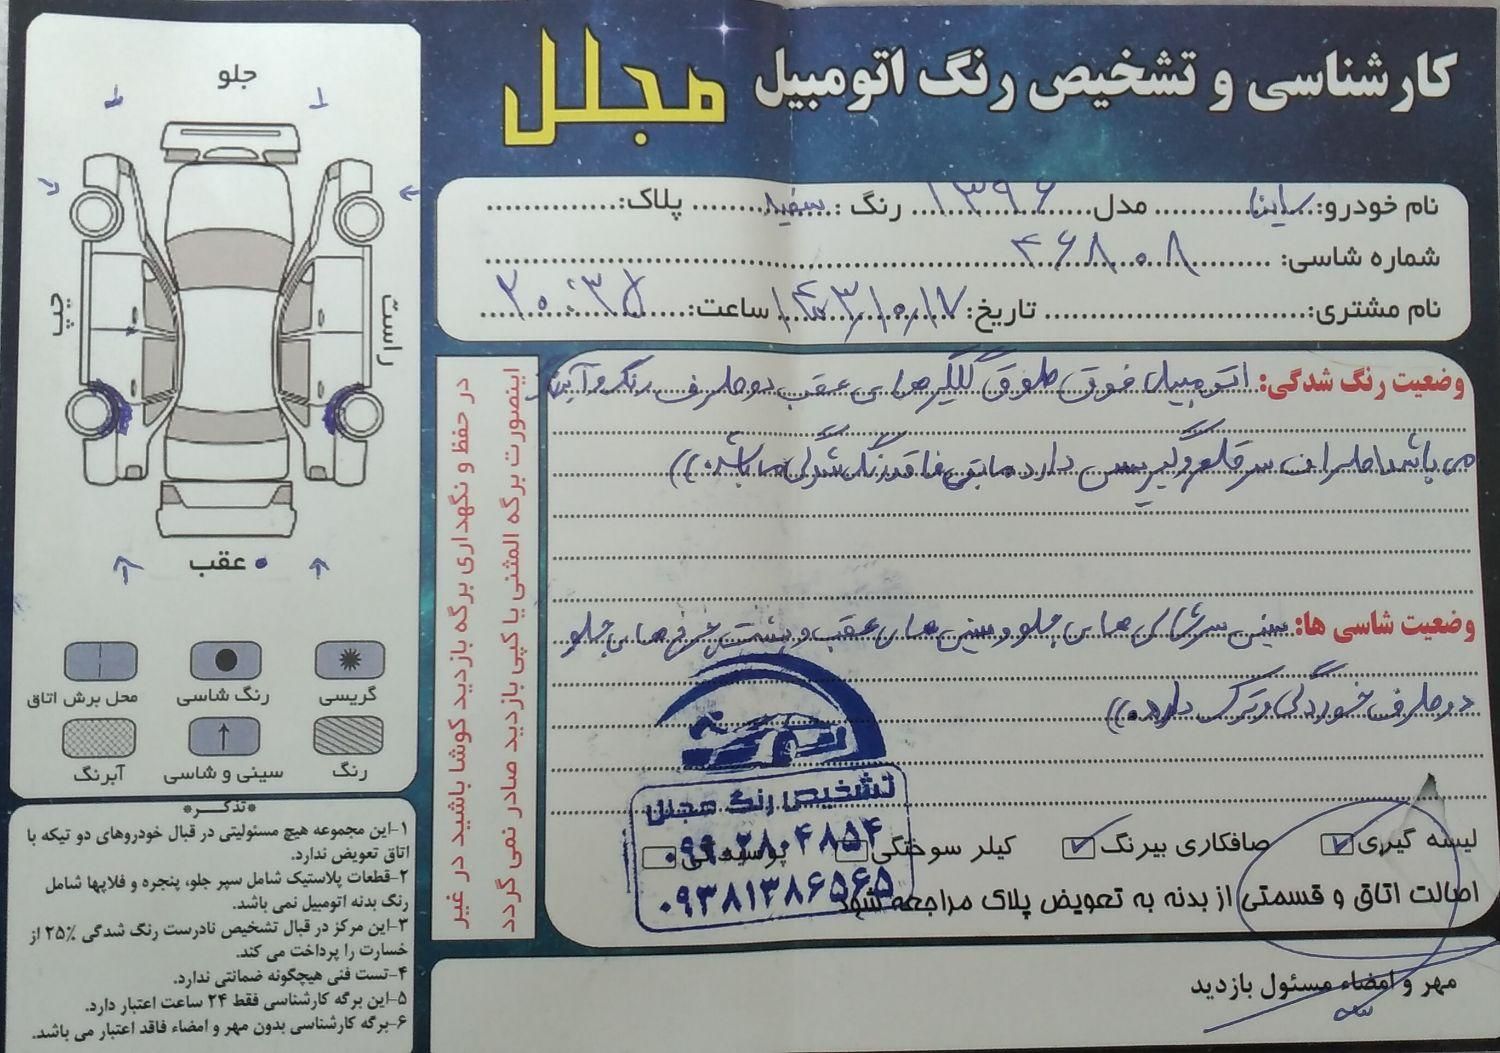 کارشناسی و تشخیص رنگ اتومبیل مجلل
نام خودرو: ساینا مدل ۱۳۹۶ رنگ : سفید پلاک:
شماره شاسی: ۴۶۸۰۰۸
نام مشتری: تاریخ: ۱۴۰۳,۱۰,۱۷ ساعت: ۲۰:۳۵
وضعیت رنگ شدگی: اتومبیل فوق طوق گلگیرهای عقب دوطرف رنگ و آبرنگ
می باشد اطراف سرقلم و گیریس دارد مابقی فاقد رنگ شدگی می باشد.))
وضعیت شاسی ها: سینی سرشاسی های جلو و سینی های عقب و پشت چرخ های جلو
دوطرف خوردگی و ترک دارد.))
لیسه گیری
صافکاری بیرنگ
کیلر سوختگی
پوسیدگی
اصالت اتاق و قسمتی از بدنه به تعویض پلاک مراجعه شود
تشخیص رنگ مجلل
۰۹۹۰۲۸۰۴۸۵۴
۰۹۳۸۱۳۸۶۵۶۵
مهر و امضاء مسئول بازدید
در حفظ و نگهداری برگه بازدید کوشا باشید در غیر
اینصورت برگه المثنی یا کپی بازدید صادر نمی گردد
جلو
چپ
راست
عقب
گریسی
رنگ شاسی
محل برش اتاق
رنگ
سینی و شاسی
آبرنگ
*تذکـــر*
۱-این مجموعه هیچ مسئولیتی در قبال خودروهای دو تیکه با
اتاق تعویض ندارد.
۲-قطعات پلاستیک شامل سپر جلو، پنجره و فلاپها شامل
رنگ بدنه اتومبیل نمی باشد.
۳-این مرکز در قبال تشخیص نادرست رنگ شدگی ۲۵٪ از
خسارت را پرداخت می کند.
۴-تست فنی هیچگونه ضمانتی ندارد.
۵-این برگه کارشناسی فقط ۲۴ ساعت اعتبار دارد.
۶-برگه کارشناسی بدون مهر و امضاء فاقد اعتبار می باشد.